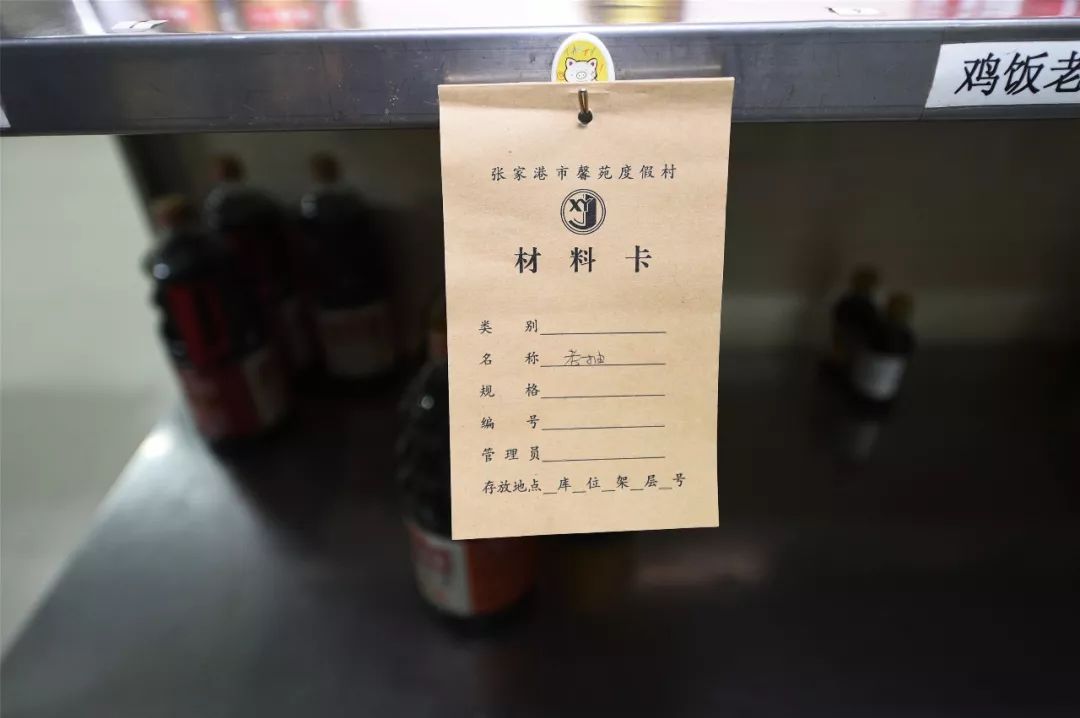 鸡饭老
张家港市馨苑度假村
XY
材料卡
类别
名称 老抽
规格
编号
管理员
存放地点_库_位_架_层_号